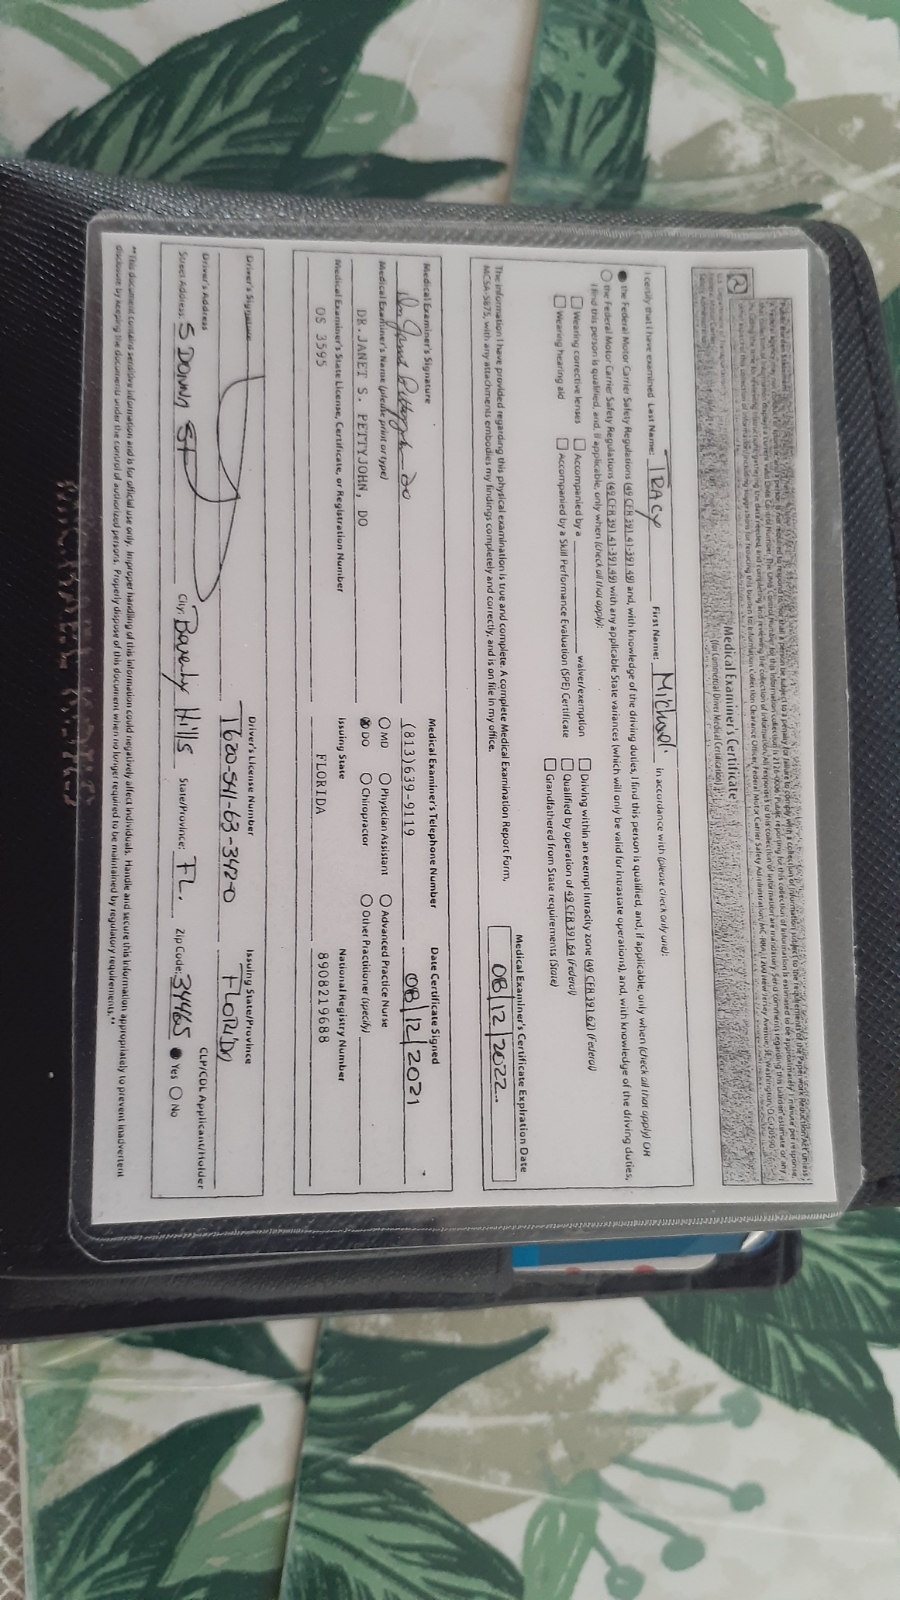 Medical Examiner's Certificate
(for Commercial Driver Medical Certification)
I certify that I have examined Last Name: TRACY First Name: Michael in accordance with (please check only one):
● the Federal Motor Carrier Safety Regulations (49 CFR 391.41-391.49) and, with knowledge of the driving duties, I find this person is qualified, and, if applicable, only when (check all that apply) OR
○ the Federal Motor Carrier Safety Regulations (49 CFR 391.41-391.49) with any applicable State variances (which will only be valid for intrastate operations), and, with knowledge of the driving duties,
I find this person is qualified, and, if applicable, only when (check all that apply):
□ Wearing corrective lenses □ Accompanied by a waiver/exemption □ Driving within an exempt intracity zone (49 CFR 391.62) (Federal)
□ Wearing hearing aid □ Accompanied by a Skill Performance Evaluation (SPE) Certificate □ Qualified by operation of 49 CFR 391.64 (Federal)
□ Grandfathered from State requirements (State)
The information I have provided regarding this physical examination is true and complete. A complete Medical Examination Report Form,
MCSA-5875, with any attachments embodies my findings completely and correctly, and is on file in my office.
Medical Examiner's Certificate Expiration Date
08/12/2022
Medical Examiner's Signature Medical Examiner's Telephone Number Date Certificate Signed
(813)639-9119 08/12/2021
Medical Examiner's Name (please print or type)
DR. JANET S. PETTYJOHN, DO
○ MD ○ Physician Assistant ○ Advanced Practice Nurse
DO ○ Chiropractor ○ Other Practitioner (specify)
Medical Examiner's State License, Certificate, or Registration Number Issuing State National Registry Number
OS 3595 FLORIDA 8908219688
Driver's Signature Driver's License Number Issuing State/Province
T620-541-63-342-0 FLORIDA
Driver's Address CLP/CDL Applicant/Holder
Street Address: 5 DONNA ST City: Beverly Hills State/Province: FL. Zip Code: 34465 ● Yes ○ No
**This document contains sensitive information and is for official use only. Improper handling of this information could negatively affect individuals. Handle and secure this information appropriately to prevent inadvertent
disclosure by keeping the documents under the control of authorized persons. Properly dispose of this document when no longer required to be maintained by regulatory requirements.**